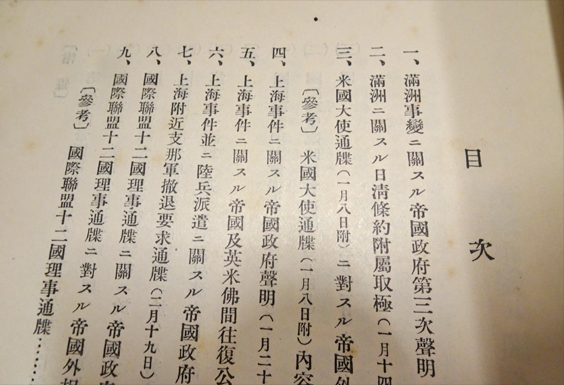 目次
一、滿洲事變ニ關スル帝國政府第三次聲明
二、滿洲ニ關スル日淸條約附屬取極(一月十四
三、米國大使通牒(一月八日附)ニ對スル帝國外
〔參考〕米國大使通牒(一月八日附)內容
四、上海事件ニ關スル帝國政府聲明(一月二十
五、上海事件ニ關スル帝國及英米佛間往復公
六、上海事件並ニ陸兵派遣ニ關スル帝國政府
七、上海附近支那軍撤退要求通牒(二月十九日)
八、國際聯盟十二國理事通牒ニ關スル帝國政府
九、國際聯盟十二國理事通牒ニ對スル帝國外相
〔參考〕國際聯盟十二國理事通牒……